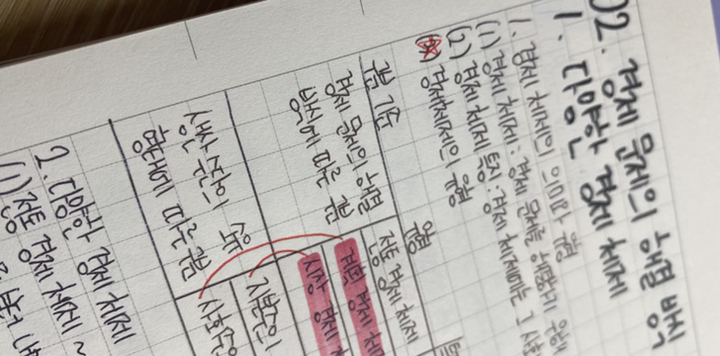 02. 경제 문제의 해결 방식
1. 다양한 경제 체제
1. 경제 체제의 의미와 유형
(1) 경제 체제 : 경제 문제를 해결하기 위해
(2) 경제 체제 특징 : 경제 체제마다 그 사회
(3) 경제체제의 유형
구분 기준
유형
경제 문제의 해결
방식에 따른 구분
전통 경제 체제
계획 경제 체제
시장 경제
생산 수단의 소유
형태에 따른 구분
자본주의
사회주의
2. 다양한 경제 체제
(1) 전통 경제 체제 ~